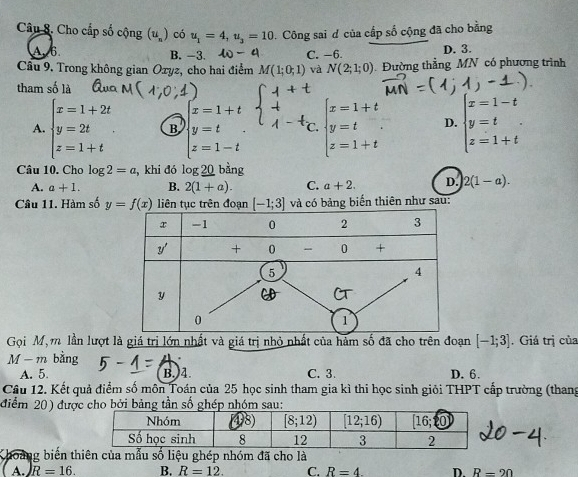 Câu 8. Cho cấp số cộng (uₙ) có u₁ = 4, u₃ = 10. Công sai d của cấp số cộng đã cho bằng
A. 6. B. −3. 10 − 4 C. −6. D. 3.
Câu 9. Trong không gian Oxyz, cho hai điểm M(1;0;1) và N(2;1;0). Đường thẳng MN có phương trình
tham số là Qua M(1;0;1) MN = (1; 1; −1).
A. { x = 1 + 2t B. { x = 1 + t { 1 + t C. { x = 1 + t D. { x = 1 − t
y = 2t y = t t y = t y = t
z = 1 + t z = 1 − t 1 − t z = 1 + t z = 1 + t
Câu 10. Cho log 2 = a, khi đó log 20 bằng
A. a + 1. B. 2(1 + a). C. a + 2. D. 2(1 − a).
Câu 11. Hàm số y = f(x) liên tục trên đoạn [−1;3] và có bảng biến thiên như sau:
x −1 0 2 3
y' + 0 − 0 +
5 4
y CĐ CT
0 1
Gọi M, m lần lượt là giá trị lớn nhất và giá trị nhỏ nhất của hàm số đã cho trên đoạn [−1;3]. Giá trị của
M − m bằng 5 − 1 = 4
A. 5. B. 4. C. 3. D. 6.
Câu 12. Kết quả điểm số môn Toán của 25 học sinh tham gia kì thi học sinh giỏi THPT cấp trường (thang
điểm 20) được cho bởi bảng tần số ghép nhóm sau:
Nhóm [4;8) [8;12) [12;16) [16;20)
Số học sinh 8 12 3 2
20 − 4.
Khoảng biến thiên của mẫu số liệu ghép nhóm đã cho là
A. R = 16. B. R = 12. C. R = 4. D. R = 20